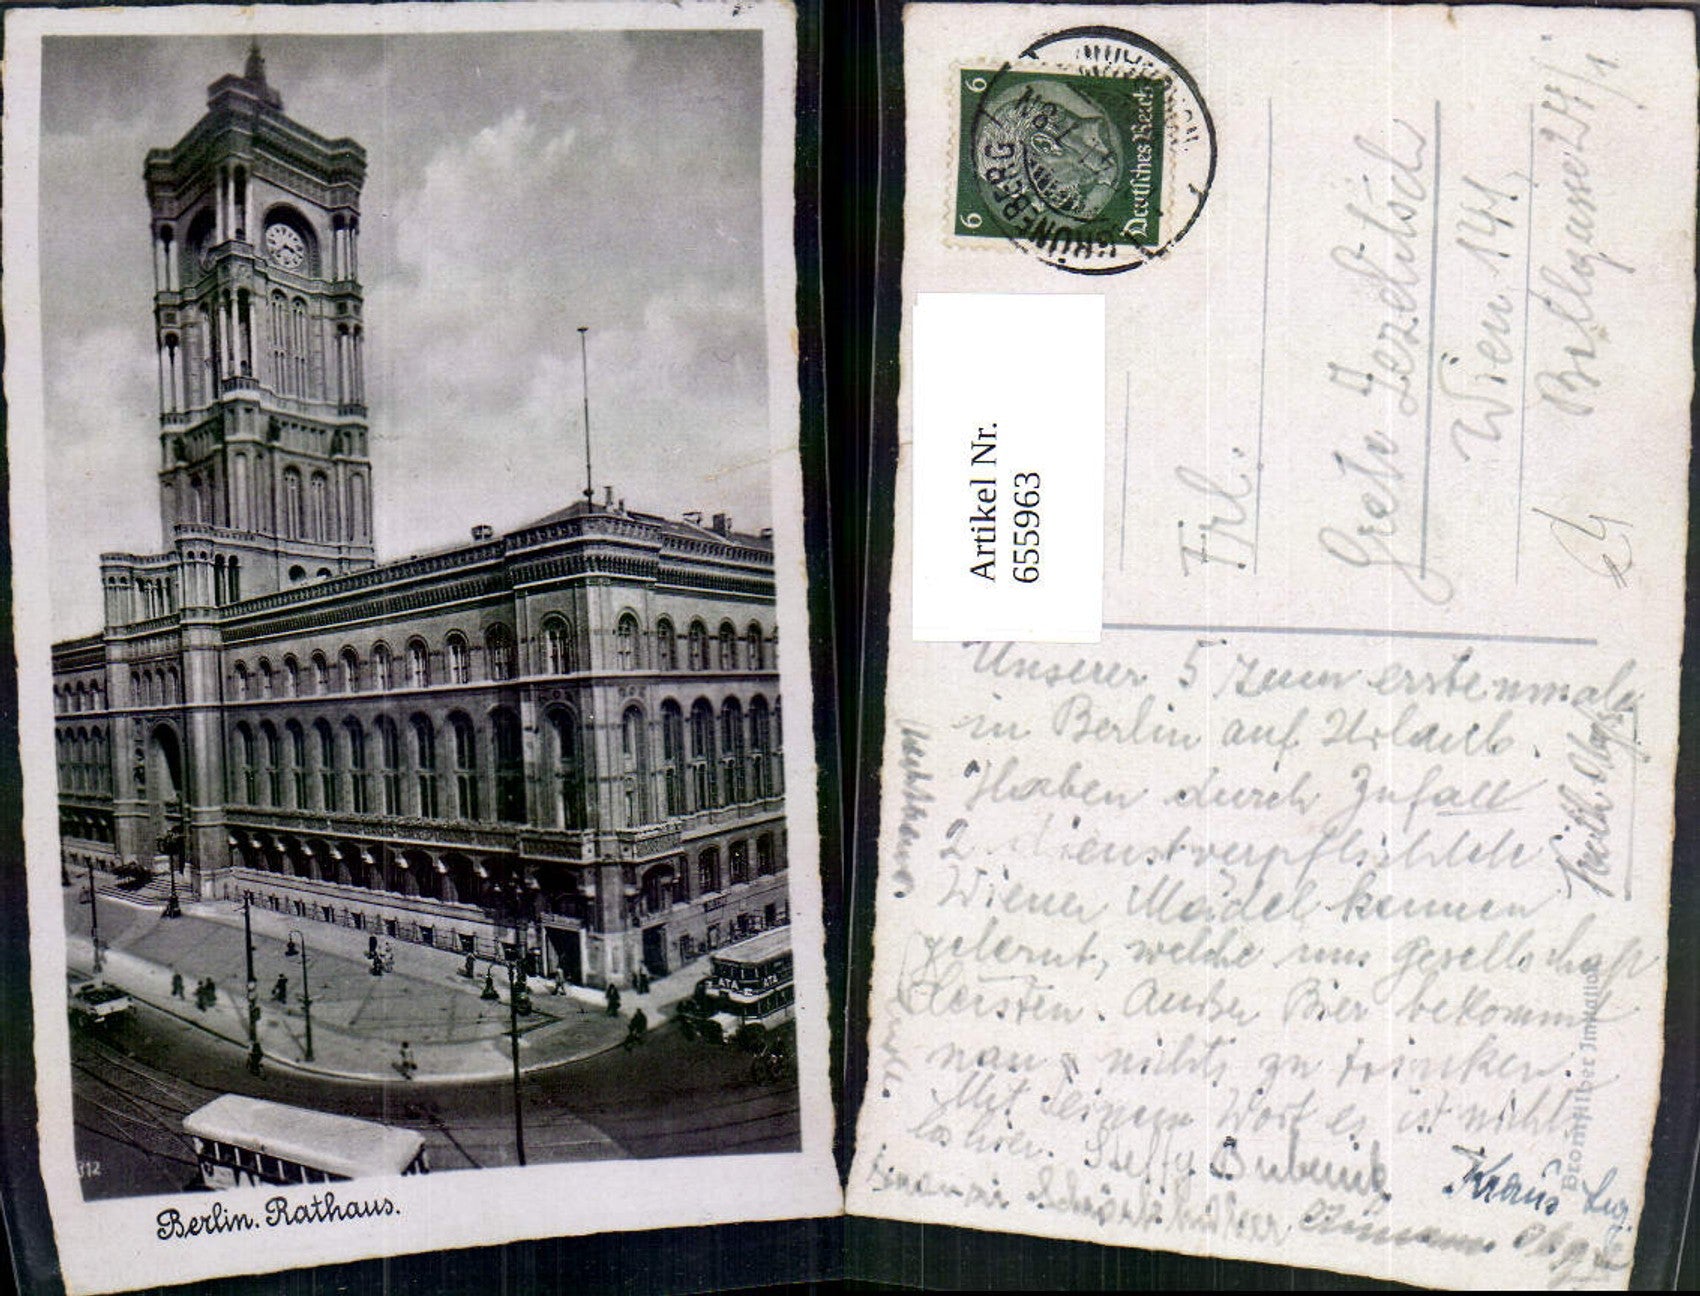 312
Berlin. Rathaus.
ATA
ATA
6
6
Deutsches Reich
GRÜNEBERG
Artikel Nr.
655963
Frl.
Grete Jezelitsch
Wien 141,
Bellgasse 24/1
Unserer 5 zum erstenmale
in Berlin auf Urlaub.
Haben durch Zufall
2 dienstverpflichtete
Wiener Mädel kennen
gelernt, welche uns Gesellschaft
leisten. Außer Bier bekommt
man nichts zu trinken.
Mit einem Wort es ist nichts
los hier. Steffy
Kraus
Bromsilber Imitation